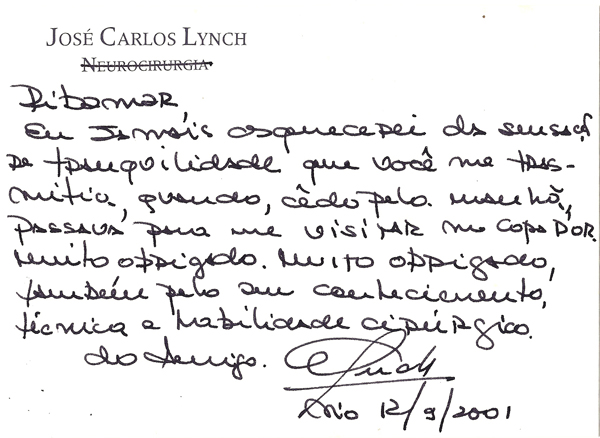 JOSÉ CARLOS LYNCH
NEUROCIRURGIA
Ribamar,
Eu jamais esquecerei da sensaçã
de tranquilidade que você me tras-
mitia, quando, cêdo pela manhã,
passava para me visitar no Copa D'OR.
Muito obrigado. Muito obrigado,
também pelo seu conhecimento,
técnica e habilidade cirúrgica.
do Amigo.
Lynch
Rio 12/9/2001